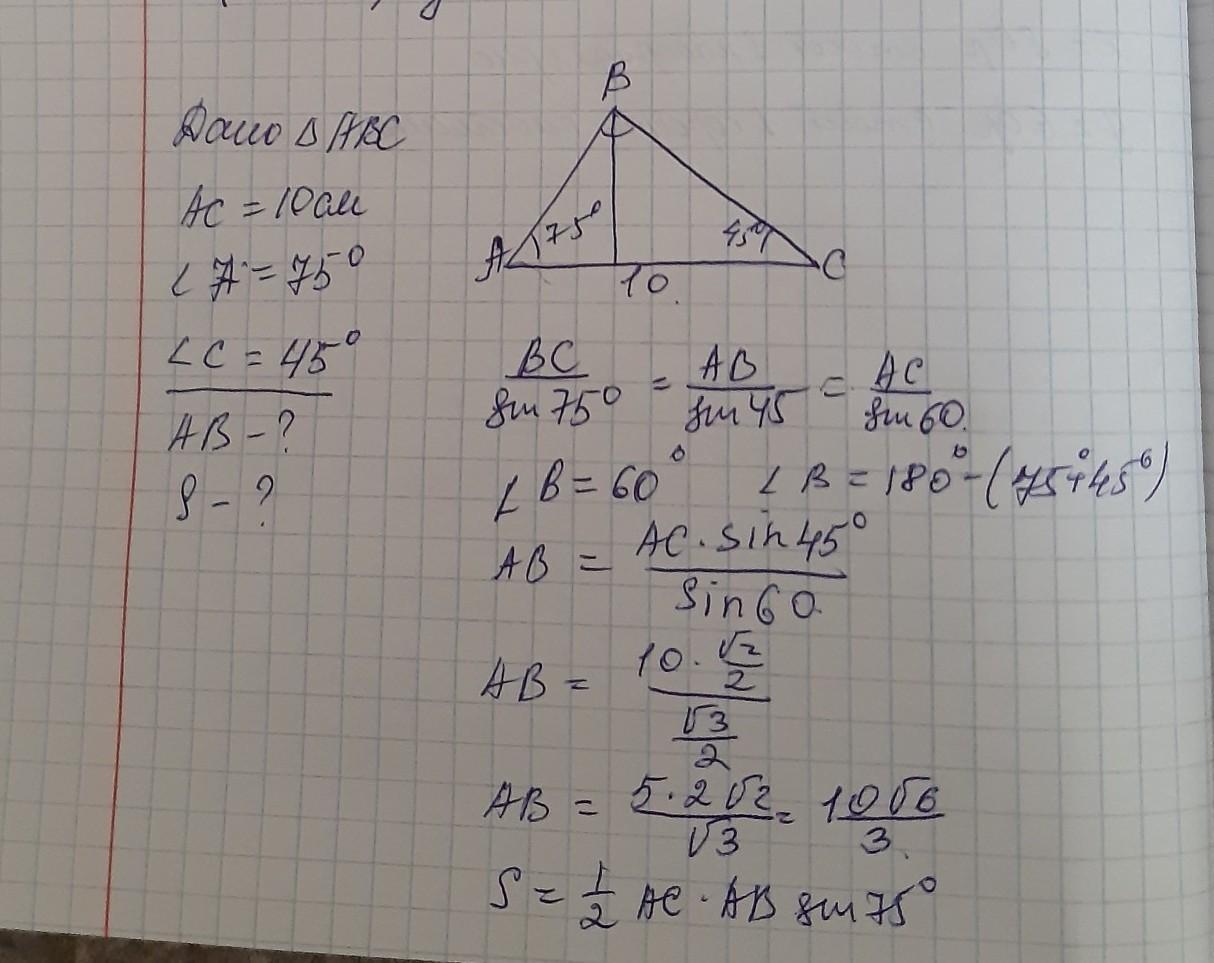 Дано Δ ABC
AC = 10см
∠ A = 75°
∠ C = 45°
AB - ?
S - ?
B
A 75° 45° C
10.
BC/sin 75° = AB/sin 45 = AC/sin 60.
∠ B = 60° ∠ B = 180° - (75° + 45°)
AB = AC · sin 45°/sin 60.
AB = 10 · √2/2 / √3/2
AB = 5 · 2√2/√3 = 10√6/3.
S = 1/2 AC · AB sin 75°